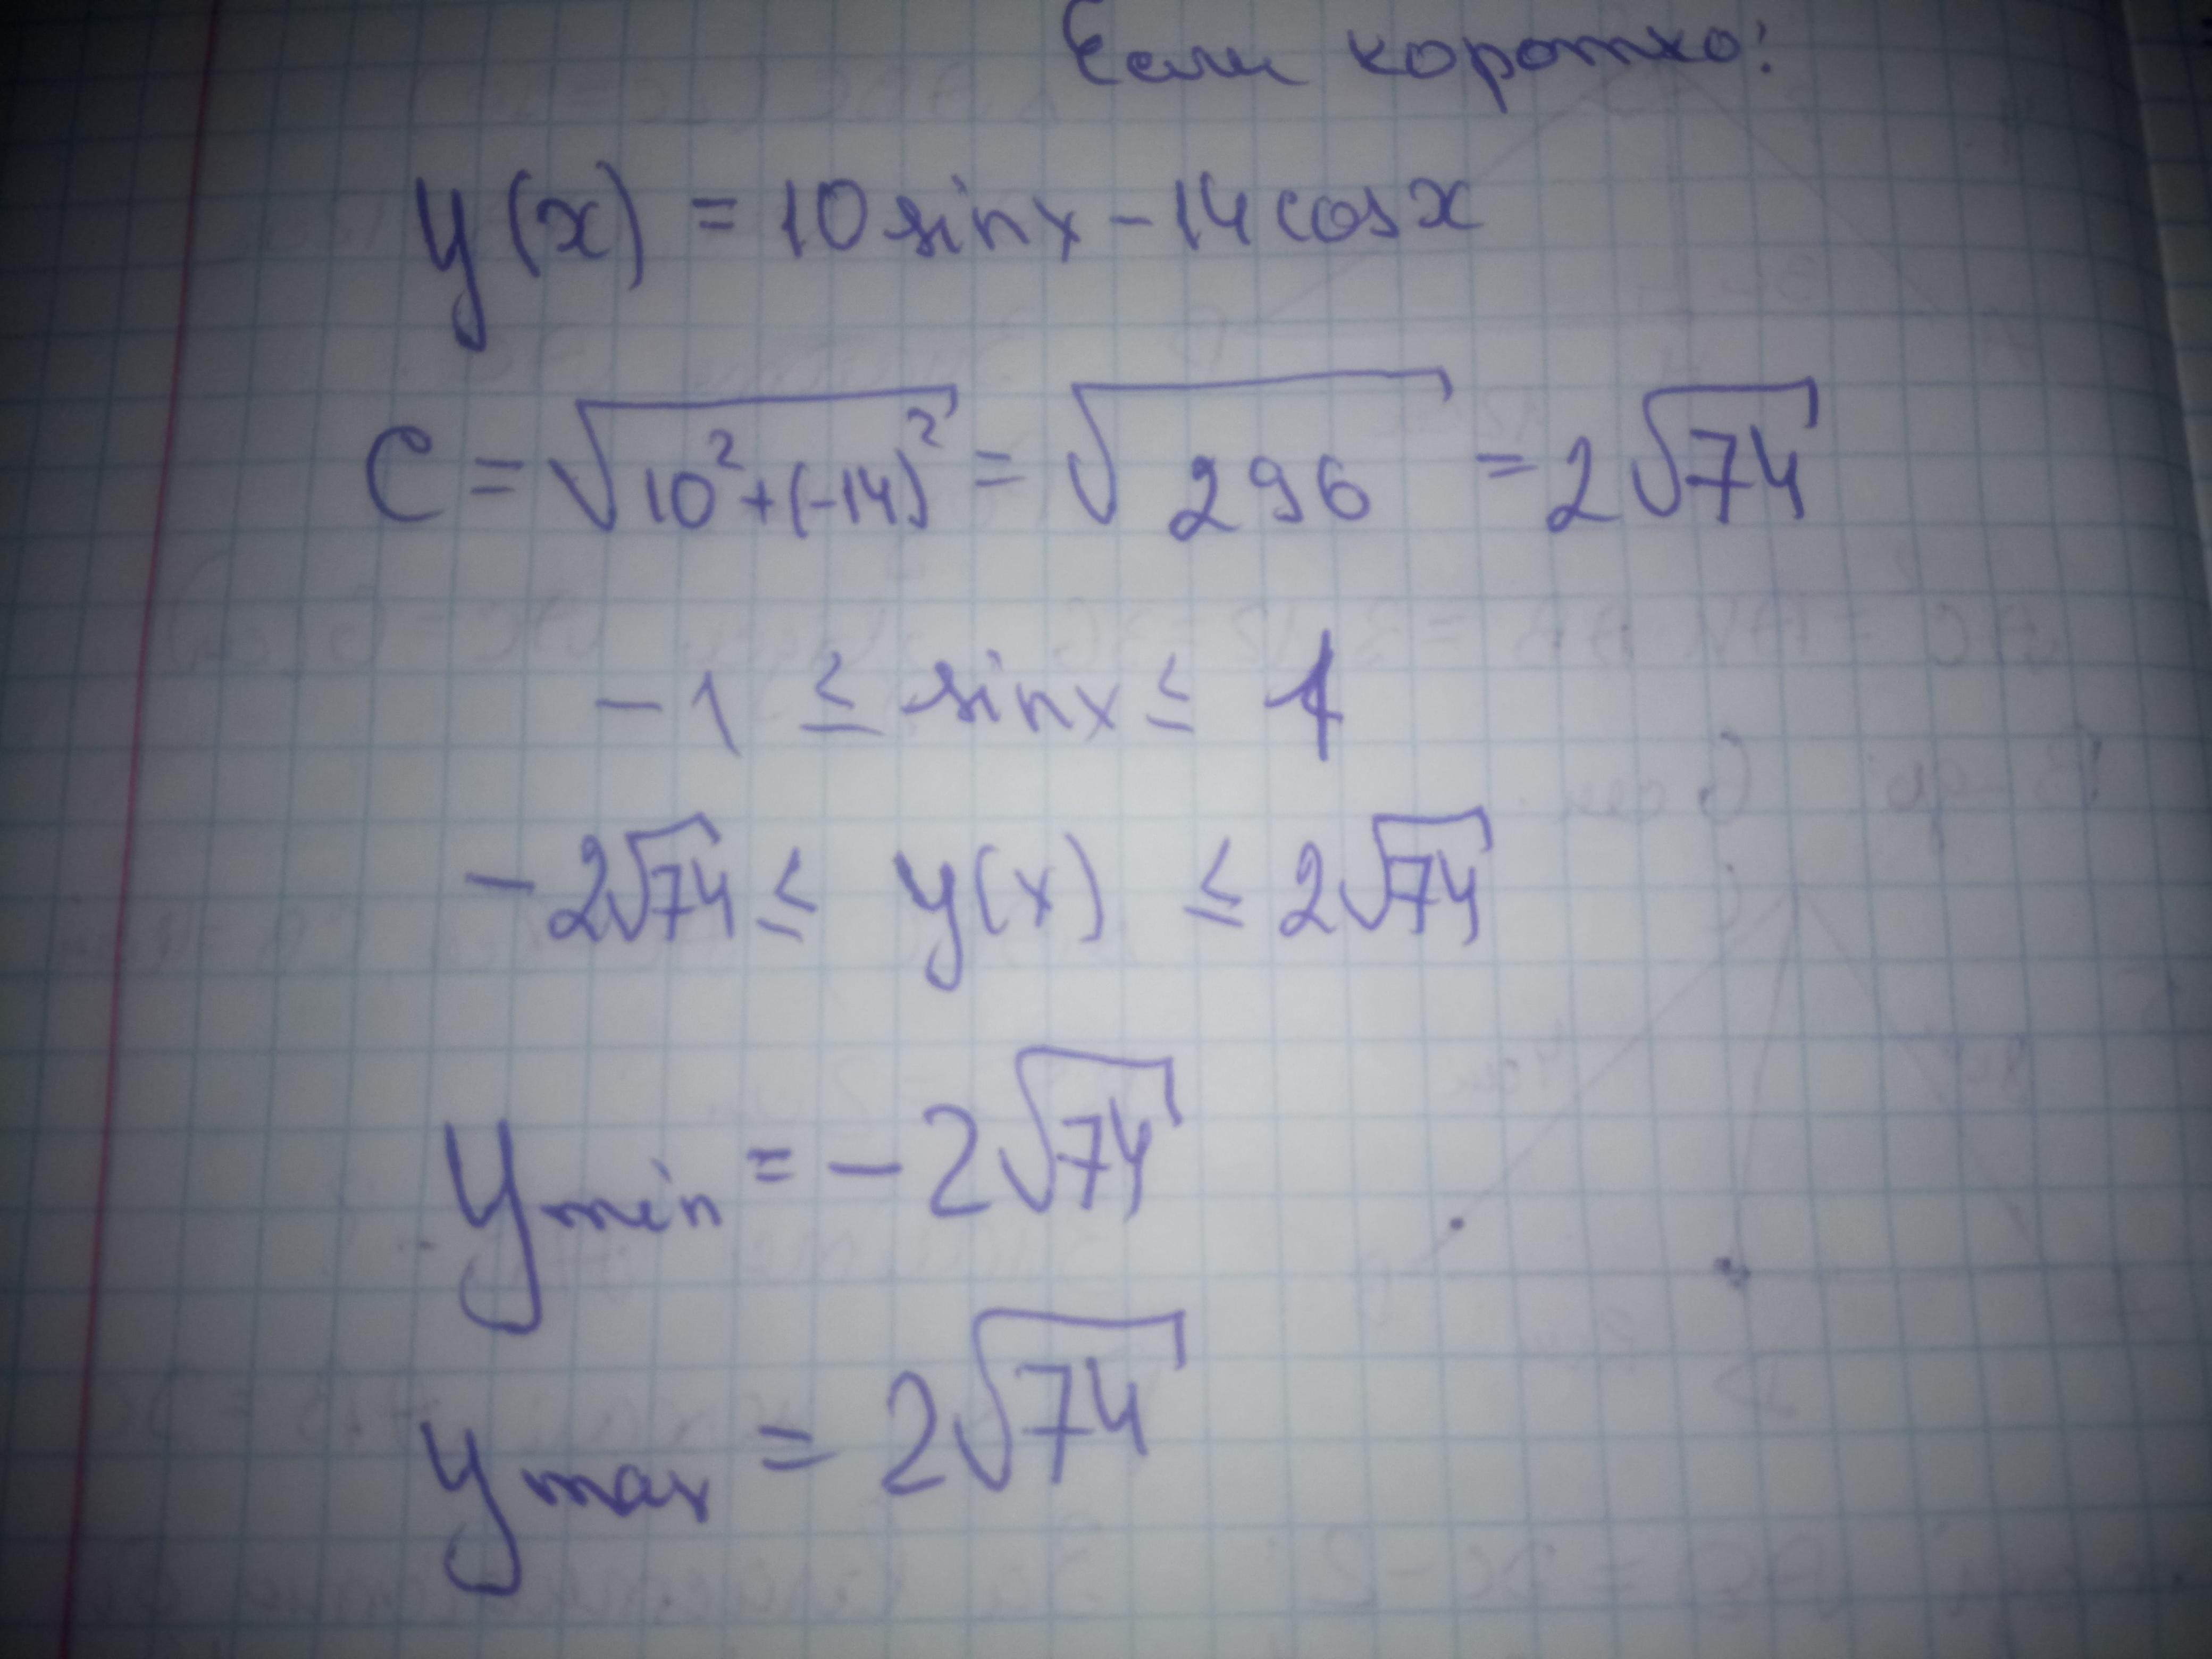 Если коротко:
y(x) = 10 sinx - 14 cosx
C = √(10² + (-14)²) = √296 = 2√74
-1 ≤ sinx ≤ 1
-2√74 ≤ y(x) ≤ 2√74
y min = -2√74
y max = 2√74